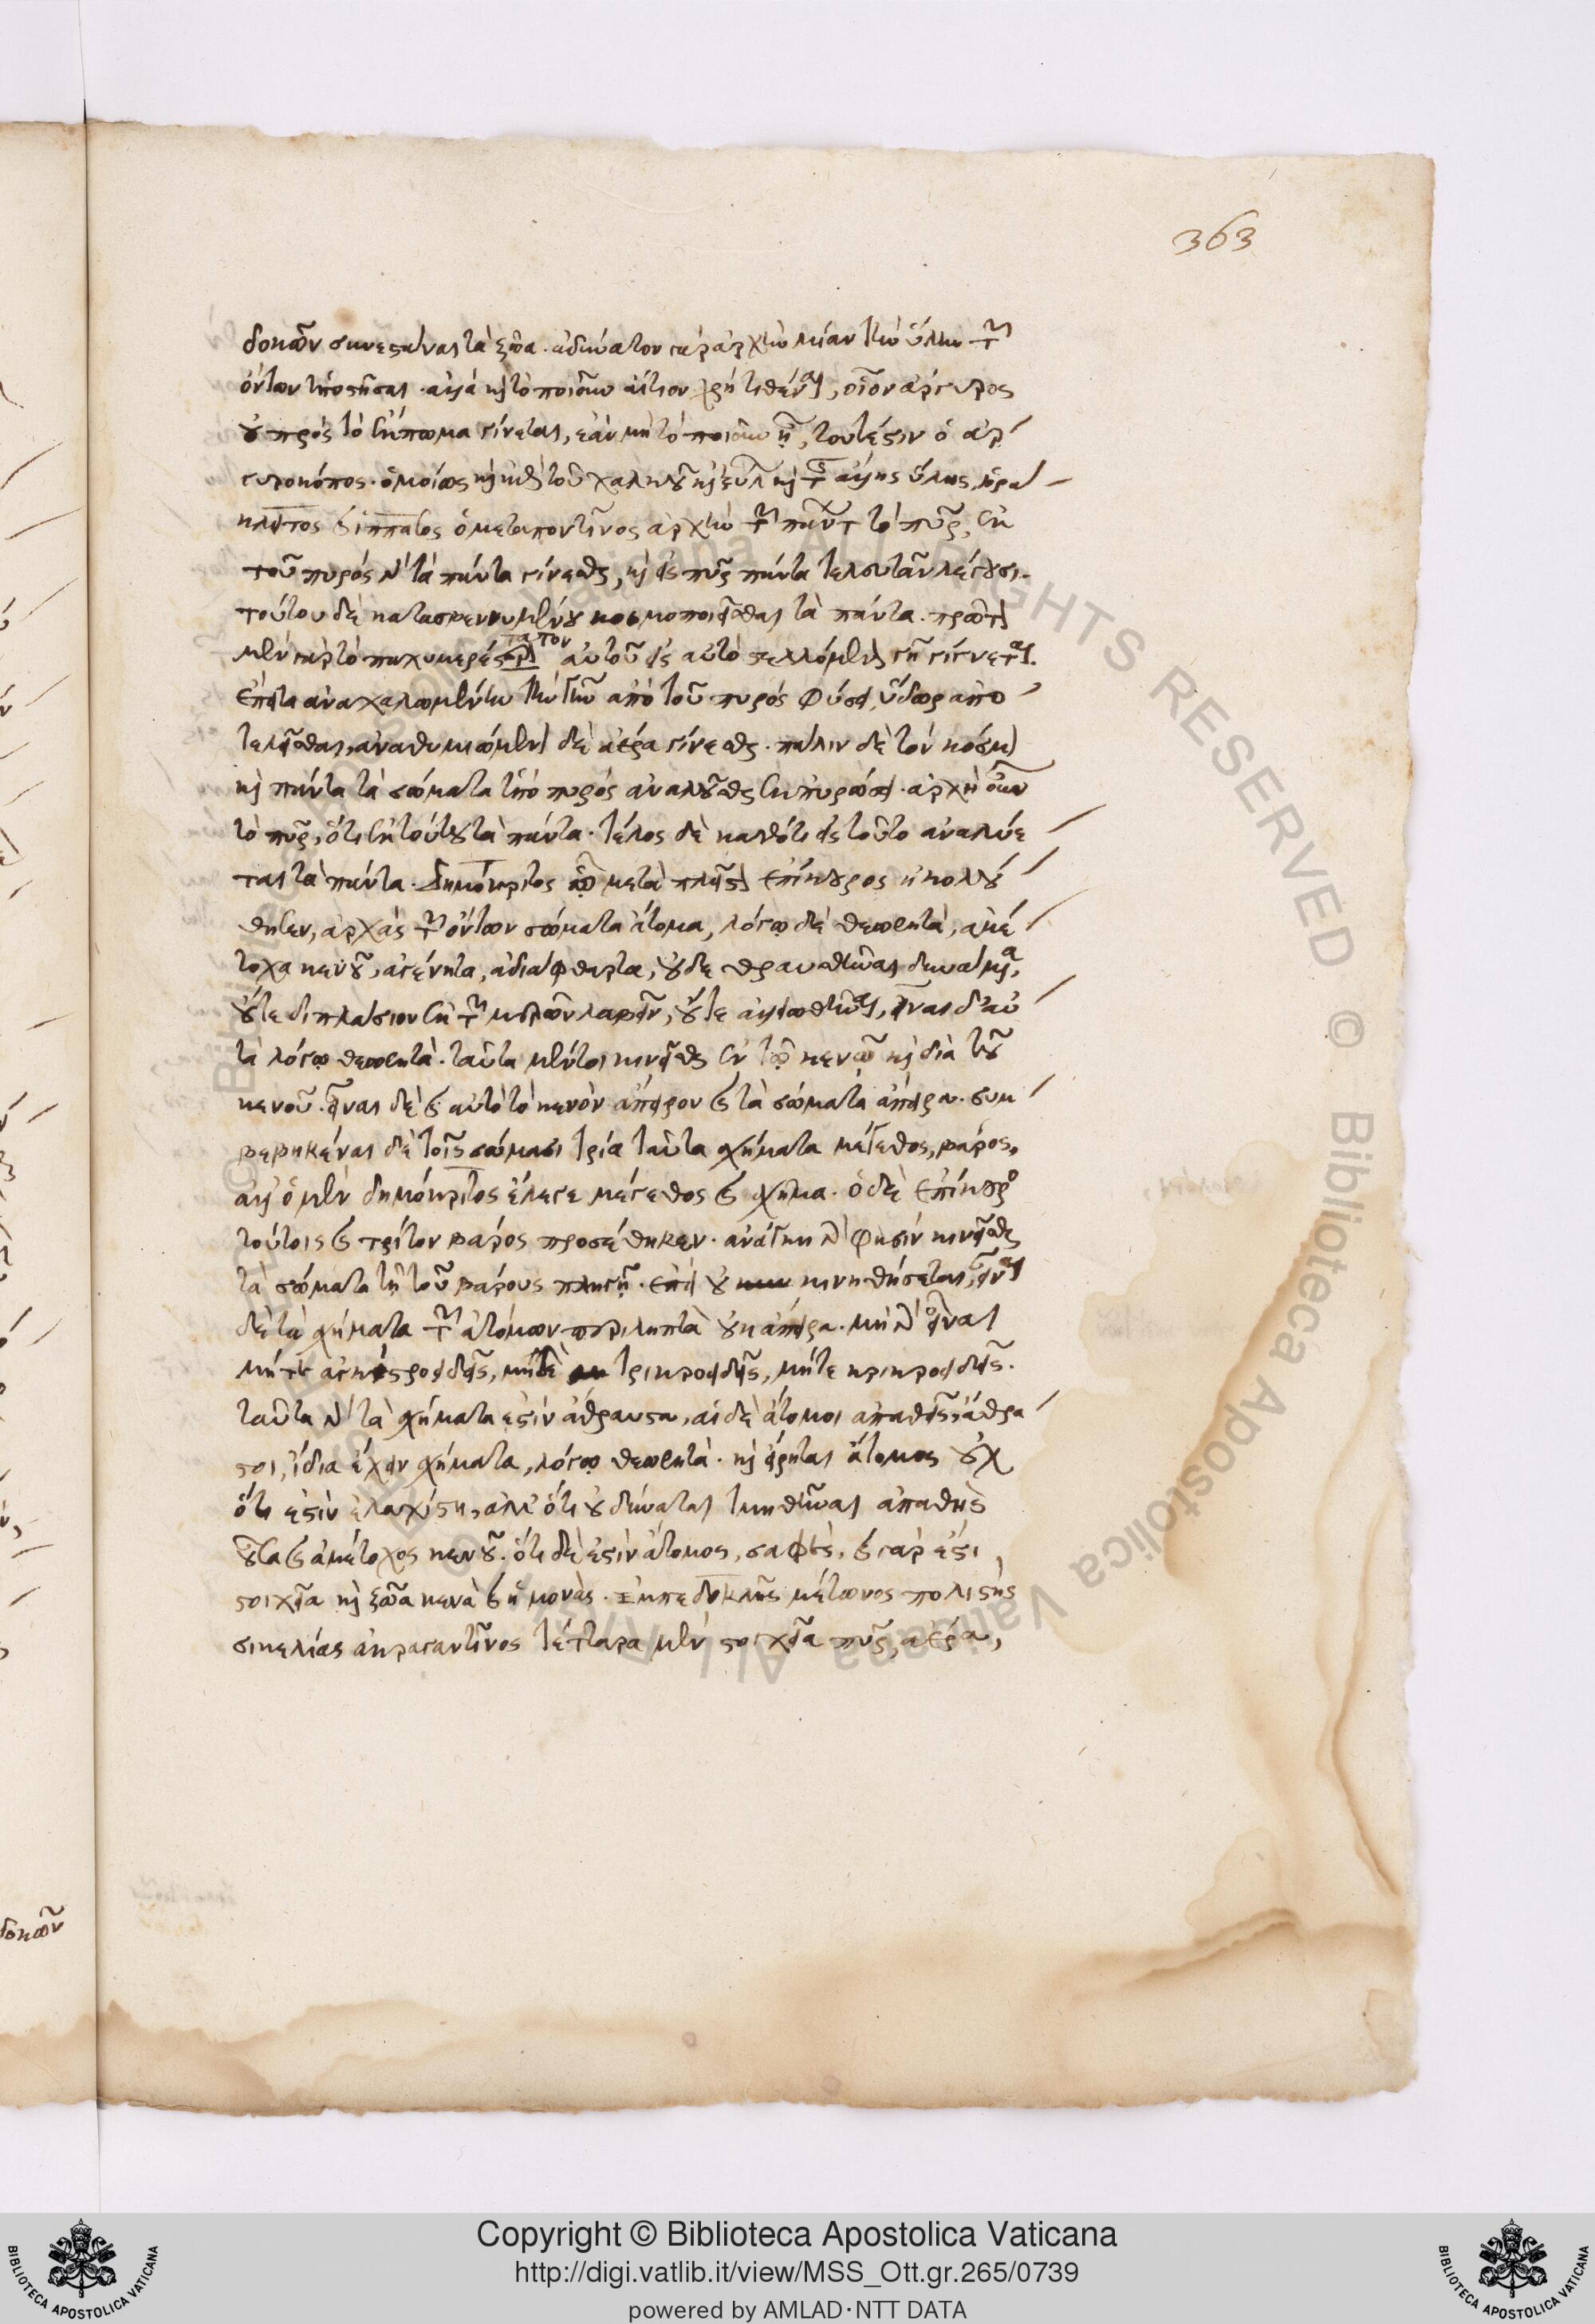 363
δοκῶν συνεστάναι τὰ ζῶα. ἀδύνατον γὰρ ἀρχὴν μίαν τὴν ὕλην τῶν
ὄντων ὑποστῆσαι. ἀλλὰ καὶ τὸ ποιοῦν αἴτιον χρὴ τιθέναι, οἷον ἄργυρος
οὐ πρὸς τὸ ἔκπωμα γίνεται, ἐὰν μὴ τὸ ποιοῦν ᾖ, τουτέστιν ὁ ἀρ
γυροκόπος. ὁμοίως καὶ ἐπὶ τοῦ χαλκοῦ καὶ ξύλου καὶ τῆς ἄλλης ὕλης. ἡρά
κλειτος καὶ ἵππασος ὁ μεταποντῖνος ἀρχὴν τῶν πάντων τὸ πῦρ, ἐκ
τοῦ πυρὸς γὰρ τὰ πάντα γίνεσθαι, καὶ εἰς πῦρ πάντα τελευτᾶν λέγουσι.
τούτου δὲ κατασβεννυμένου κοσμοποιεῖσθαι τὰ πάντα. πρῶτον
μὲν γὰρ τὸ παχυμερέστατον αὐτοῦ εἰς αὐτὸ στελλόμενον γῆ γίγνεται.
ἔπειτα ἀναχαλωμένην τὴν γῆν ἀπὸ τοῦ πυρὸς φύσει, ὕδωρ ἀπο
τελεῖσθαι, ἀναθυμιώμενον δὲ ἀέρα γίνεσθαι. πάλιν δὲ τὸν κόσμον
καὶ πάντα τὰ σώματα ὑπὸ πυρὸς ἀναλοῦσθαι ἐκπυρώσει. ἀρχὴ οὖν
τὸ πῦρ, ὅτι ἐκ τούτου τὰ πάντα. τέλος δὲ καθότι εἰς τοῦτο ἀναλύε
ται τὰ πάντα. δημόκριτος ᾧ μετὰ πλεῖστον ἐπίκουρος ἠκολού
θησεν, ἀρχὰς τῶν ὄντων σώματα ἄτομα, λόγῳ δὲ θεωρητὰ, ἀμέ
τοχα κενοῦ, ἀγένητα, ἀδιάφθαρτα, οὐδὲ θραυσθῆναι δυνάμενα,
οὔτε διπλασιον ἐκ τῶν μερῶν λαβεῖν, οὔτε ἀλλοιωθῆναι, εἶναι δ' αὐ
τὰ λόγῳ θεωρητὰ. ταῦτα μέντοι κινεῖσθαι ἐν τῷ κενῷ καὶ διὰ τοῦ
κενοῦ. εἶναι δὲ καὶ αὐτὸ τὸ κενὸν ἄπειρον καὶ τὰ σώματα ἄπειρα. συμ
βεβηκέναι δὲ τοῖς σώμασι τρία ταῦτα σχήματα μέγεθος, βάρος,
ἀλλ' ὁ μὲν δημόκριτος ἔλεγε μέγεθος καὶ σχῆμα. ὁ δὲ ἐπίκουρος
τούτοις καὶ τρίτον βάρος προσέθηκεν. ἀνάγκη γὰρ φησὶν κινεῖσθαι
τὰ σώματα τῇ τοῦ βάρους πληγῇ. ἐπεὶ οὐ κινηθήσεται, εἶναι
δὲ τὰ σχήματα τῶν ἀτόμων περιληπτὰ οὐκ ἄπειρα. μὴ γὰρ εἶναι
μήτε ἀγκιστροειδεῖς, μήτε τρικροειδεῖς, μήτε κρικροειδεῖς.
ταῦτα γὰρ τὰ σχήματα ἐστὶν ἄθραυστα, αἱ δὲ ἄτομοι ἀπαθεῖς, ἄθραυ
στοι, ἴδια ἔχειν σχήματα, λόγῳ θεωρητὰ. καὶ εἴρηται ἄτομος οὐχ
ὅτι ἐστὶν ἐλαχίστη, ἀλλ' ὅτι οὐ δύναται τμηθῆναι ἀπαθὴς
οὖσα καὶ ἀμέτοχος κενοῦ. ὅτι δὲ ἐστὶν ἄτομος, σαφές. καὶ γὰρ ἐστὶ
στοιχεῖα καὶ ζῶα κενὰ καὶ ἡ μονὰς. ἐμπεδοκλῆς μέτωνος πολίτης
σικελίας ἀκραγαντῖνος τέτταρα μὲν στοιχεῖα πῦρ, ἀέρα,
δοκῶν
Copyright © Biblioteca Apostolica Vaticana
http://digi.vatlib.it/view/MSS_Ott.gr.265/0739
powered by AMLAD·NTT DATA
BIBLIOTECA APOSTOLICA VATICANA
BIBLIOTECA APOSTOLICA VATICANA